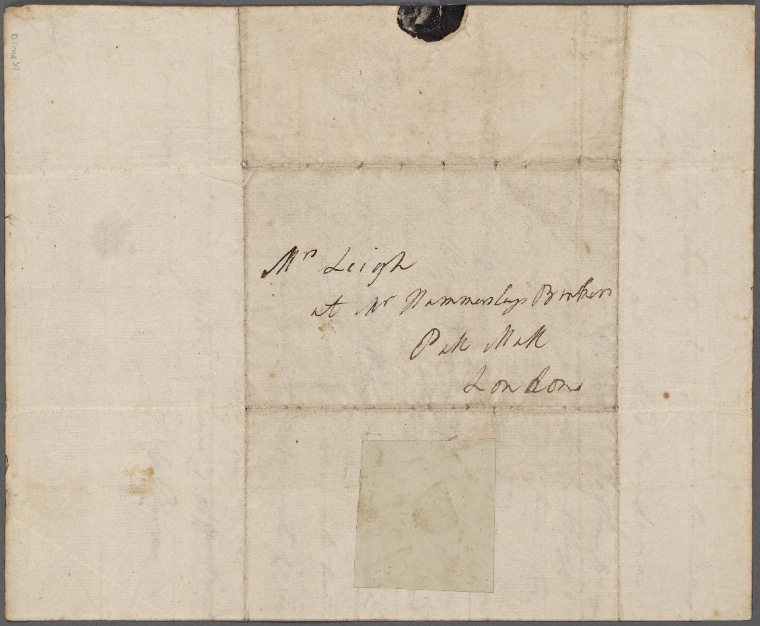 Mrs Leigh
at Mr Hammersleys Bankers
Pall Mall
London